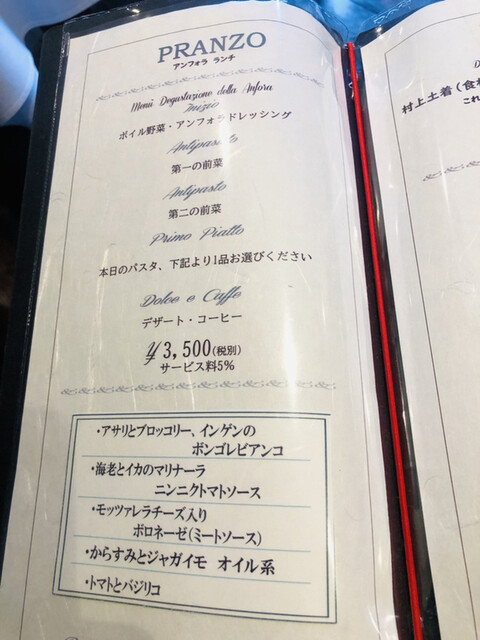 PRANZO
アンフォラ ランチ
Menù Degustazione della Anfora
Inizio
ボイル野菜・アンフォラドレッシング
Antipasto
第一の前菜
Antipasto
第二の前菜
Primo Piatto
本日のパスタ、下記より1品お選びください
Dolce e Caffe
デザート・コーヒー
¥3,500(税別)
サービス料5%
・アサリとブロッコリー、インゲンの
ボンゴレビアンコ
・海老とイカのマリナーラ
ニンニクトマトソース
・モッツァレラチーズ入り
ボロネーゼ(ミートソース)
・からすみとジャガイモ オイル系
・トマトとバジリコ
村上土着(食
これ